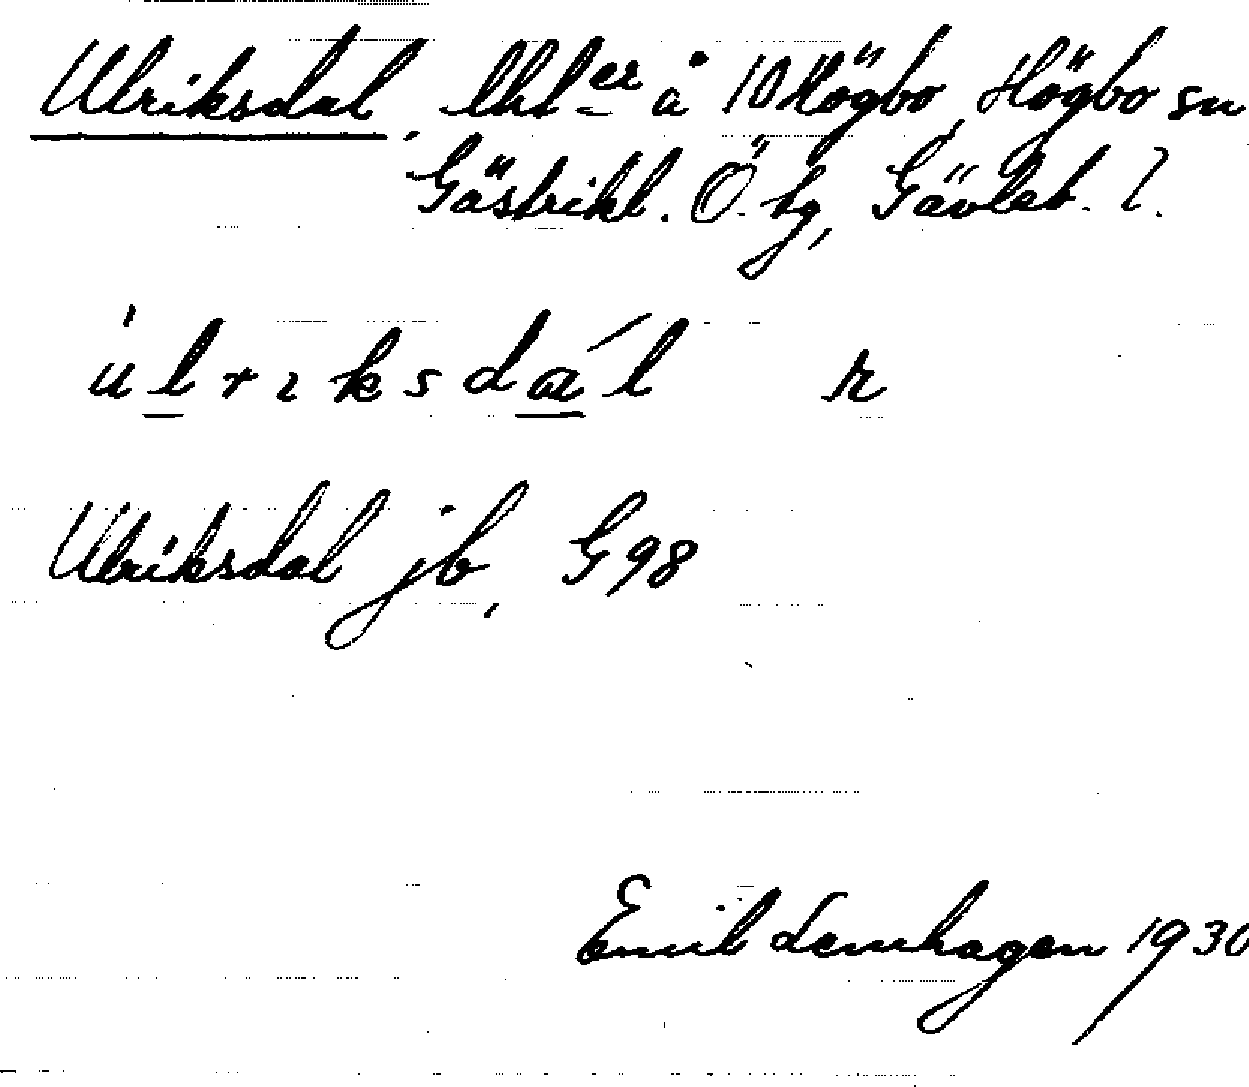 Ulriksdal, lht er å 10 Högbo, Högbo sn
Gästrikl. Ö. hg, Gävleb. l.
ùlrıksdɑ́l r
Ulriksdal jb, G98
Emil Lennhagen 1930